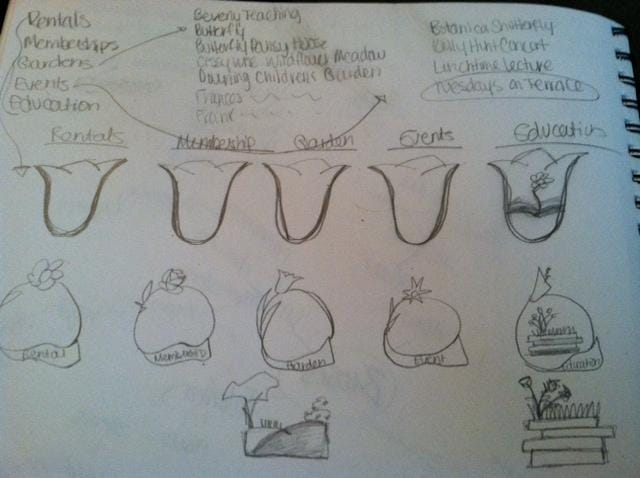 Rentals
Memberships
Gardens
Events
Education
Beverly Teaching
Butterfly
Butterfly Pansy House
Cissy Wise Wildflower Meadow
Downing Childrens Garden
Frances
Frank
Botanica Shutterfly
Kelly Hunt Concert
Lunchtime lecture
Tuesdays on Terrace
Rentals Membership Garden Events Education
Rental Membership Garden Event Education